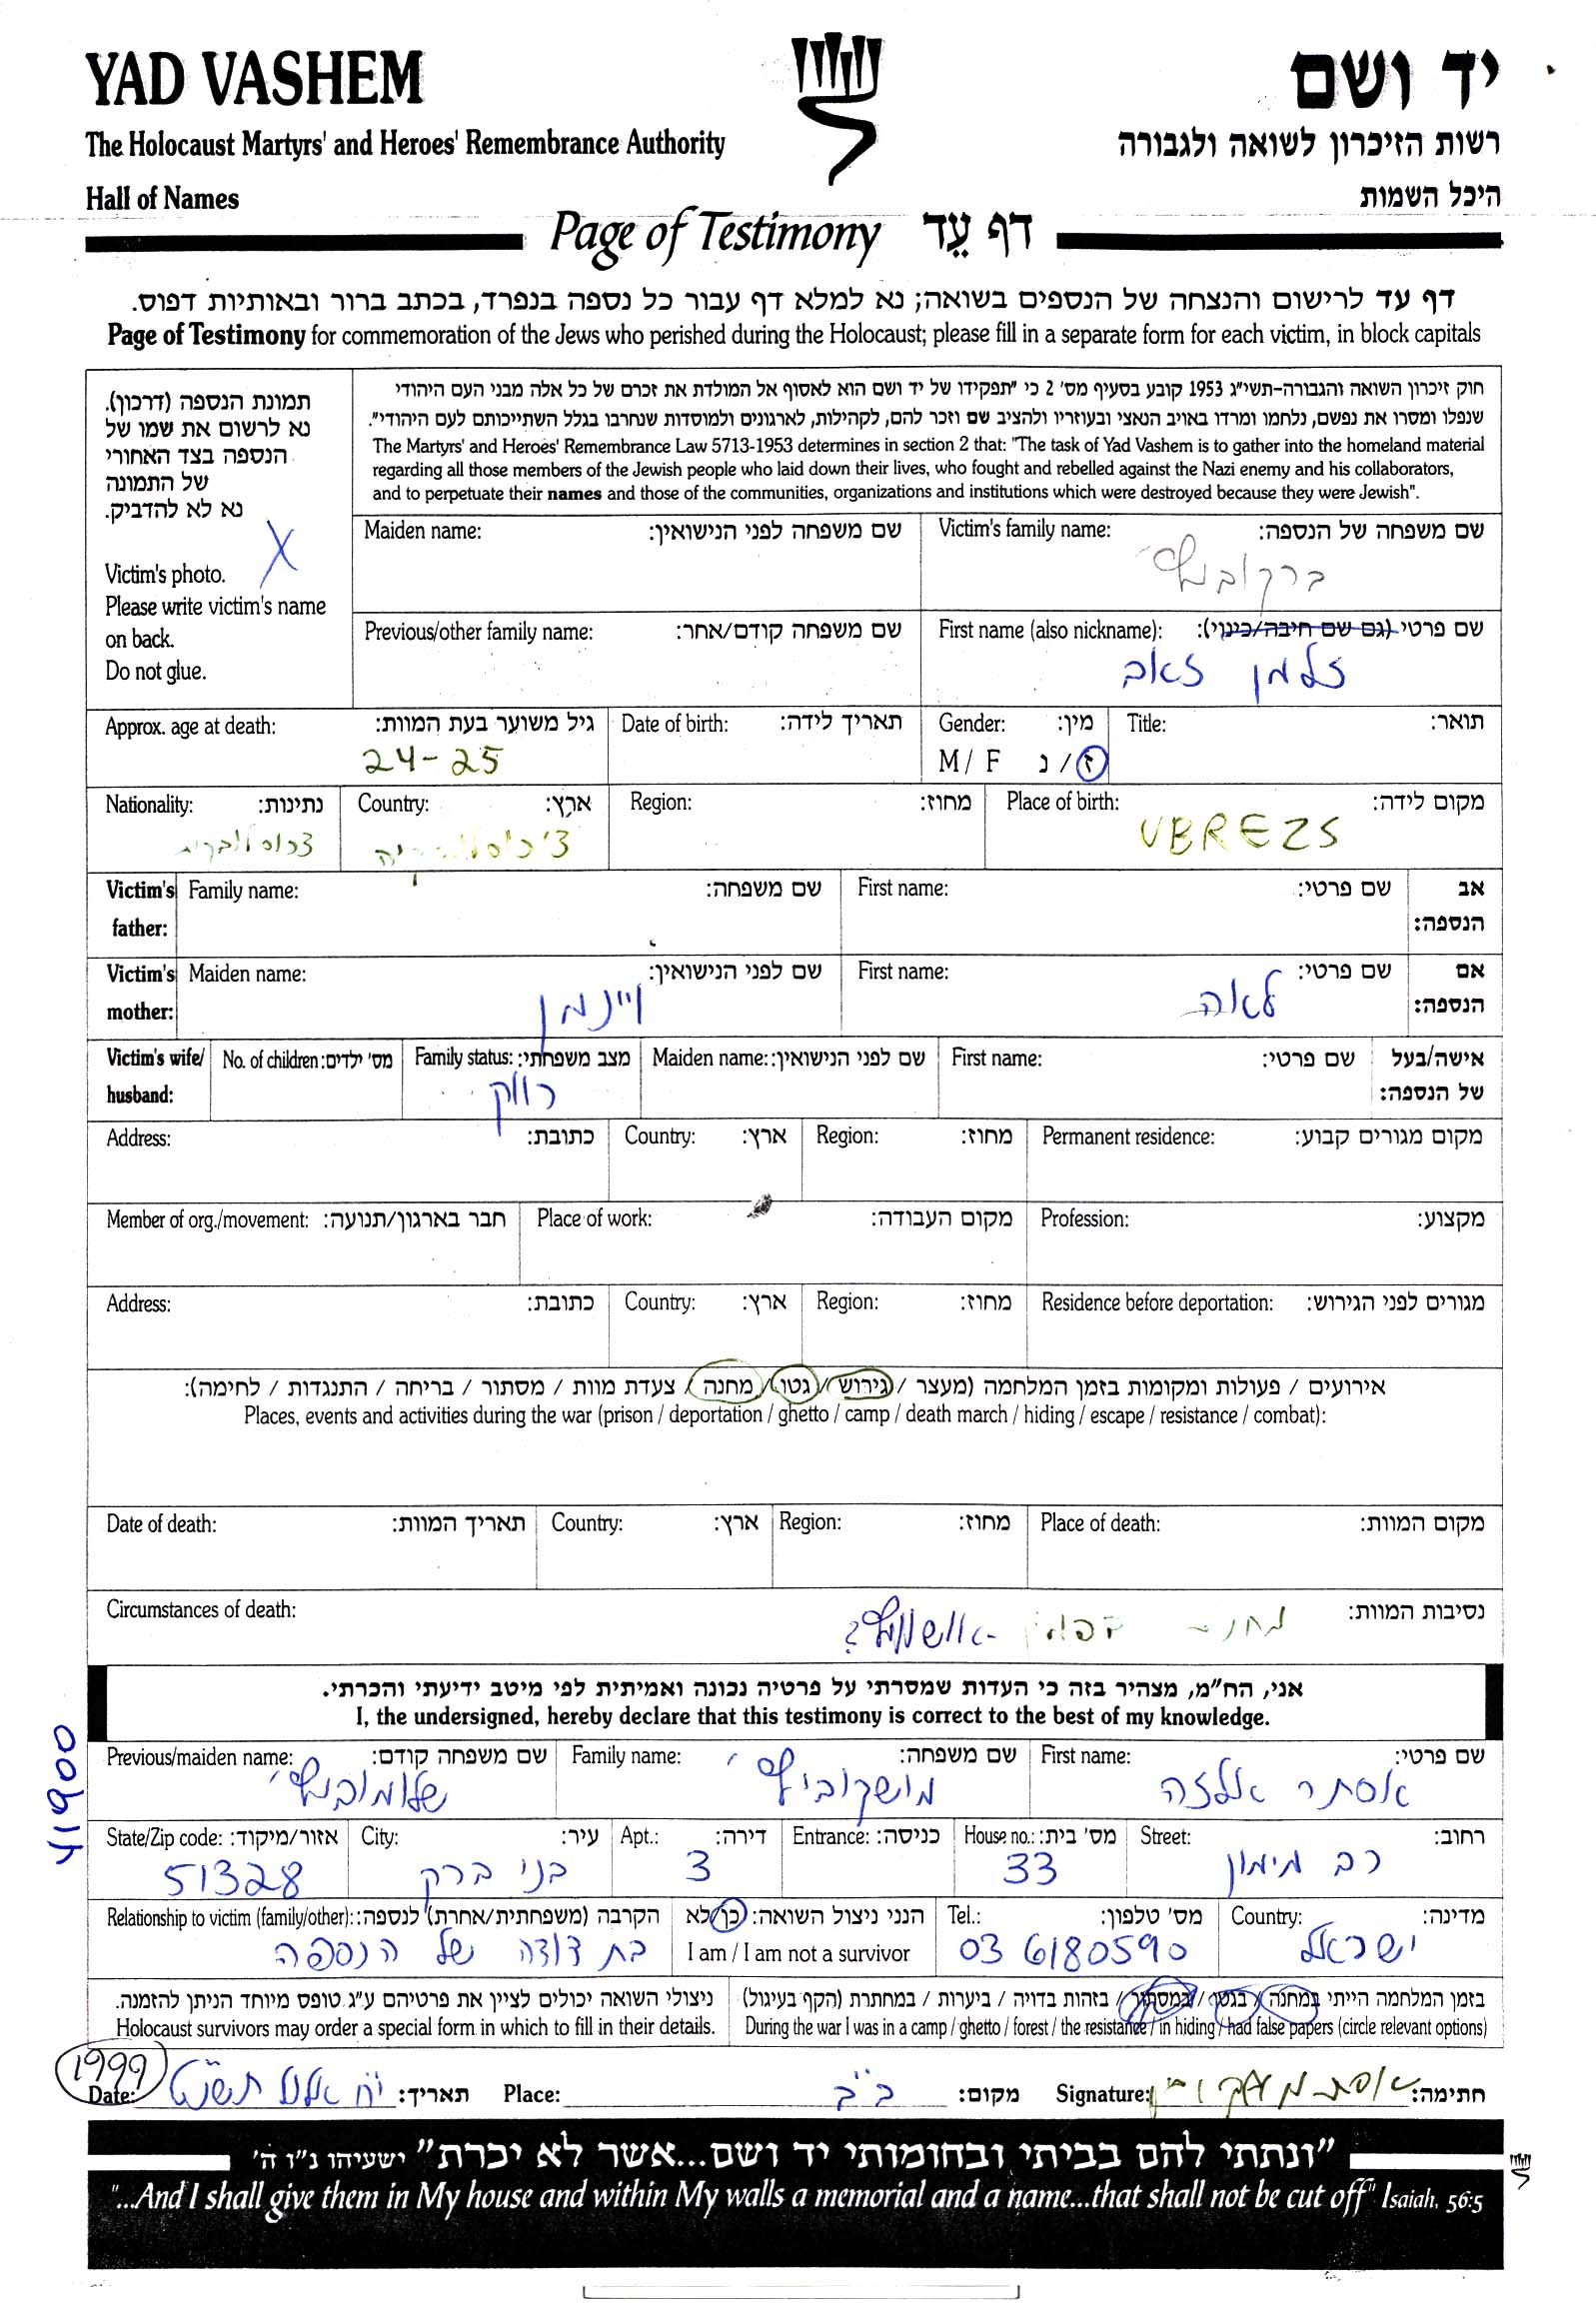 YAD VASHEM
The Holocaust Martyrs' and Heroes' Remembrance Authority
Hall of Names
יד ושם
רשות הזיכרון לשואה ולגבורה
היכל השמות
Page of Testimony דף עֵד
דף עד לרישום והנצחה של הנספים בשואה; נא למלא דף עבור כל נספה בנפרד, בכתב ברור ובאותיות דפוס.
Page of Testimony for commemoration of the Jews who perished during the Holocaust; please fill in a separate form for each victim, in block capitals
תמונת הנספה (דרכון).
נא לרשום את שמו של
הנספה בצד האחורי
של התמונה
נא לא להדביק.
X
Victim's photo.
Please write victim's name
on back.
Do not glue.
חוק זיכרון השואה והגבורה-תשי״ג 1953 קובע בסעיף מס׳ 2 כי ״תפקידו של יד ושם הוא לאסוף אל המולדת את זכרם של כל אלה מבני העם היהודי
שנפלו ומסרו את נפשם, נלחמו ומרדו באויב הנאצי ובעוזריו ולהציב שם וזכר להם, לקהילות, לארגונים ולמוסדות שנחרבו בגלל השתייכותם לעם היהודי״.
The Martyrs' and Heroes' Remembrance Law 5713-1953 determines in section 2 that: "The task of Yad Vashem is to gather into the homeland material
regarding all those members of the Jewish people who laid down their lives, who fought and rebelled against the Nazi enemy and his collaborators,
and to perpetuate their names and those of the communities, organizations and institutions which were destroyed because they were Jewish".
Maiden name: שם משפחה לפני הנישואין:
Victim's family name: שם משפחה של הנספה:
ברקוביץ'
Previous/other family name: שם משפחה קודם/אחר:
First name (also nickname): שם פרטי (גם שם חיבה/כינוי):
זלמן זאב
Approx. age at death: גיל משוער בעת המוות:
24-25
Date of birth: תאריך לידה:
Gender: מין:
M/ F נ / ז
Title: תואר:
Nationality: נתינות:
Country: ארץ:
Region: מחוז:
Place of birth: מקום לידה:
UBREZS
Victim's father: Family name: שם משפחה:
First name: שם פרטי: אב הנספה:
Victim's mother: Maiden name: שם לפני הנישואין:
ויינמן
First name: שם פרטי: אם הנספה:
לאה
Victim's wife/ husband: No. of children: מס׳ ילדים:
Family status: מצב משפחתי:
רווק
Maiden name: שם לפני הנישואין:
First name: שם פרטי: אישה/בעל של הנספה:
Address: כתובת: Country: ארץ: Region: מחוז: Permanent residence: מקום מגורים קבוע:
Member of org./movement: חבר בארגון/תנועה: Place of work: מקום העבודה: Profession: מקצוע:
Address: כתובת: Country: ארץ: Region: מחוז: Residence before deportation: מגורים לפני הגירוש:
אירועים / פעולות ומקומות בזמן המלחמה (מעצר / גירוש / גטו / מחנה / צעדת מוות / מסתור / בריחה / התנגדות / לחימה):
Places, events and activities during the war (prison / deportation / ghetto / camp / death march / hiding / escape / resistance / combat):
Date of death: תאריך המוות: Country: ארץ: Region: מחוז: Place of death: מקום המוות:
Circumstances of death: נסיבות המוות:
אושוויץ?
אני, הח״מ, מצהיר בזה כי העדות שמסרתי על פרטיה נכונה ואמיתית לפי מיטב ידיעתי והכרתי.
I, the undersigned, hereby declare that this testimony is correct to the best of my knowledge.
41900
Previous/maiden name: שם משפחה קודם:
שלומוביץ'
Family name: שם משפחה:
מושקוביץ'
First name: שם פרטי:
אסתר אליזה
State/Zip code: אזור/מיקוד:
51328
City: עיר:
בני ברק
Apt.: דירה:
3
Entrance: כניסה:
House no.: מס׳ בית:
33
Street: רחוב:
רב מימון
Relationship to victim (family/other): הקרבה (משפחתית/אחרת) לנספה:
בת דודה של הנספה
הנני ניצול השואה: כן/לא
I am / I am not a survivor
Tel.: מס׳ טלפון:
03 6180590
Country: מדינה:
ישראל
ניצולי השואה יכולים לציין את פרטיהם ע״ג טופס מיוחד הניתן להזמנה.
Holocaust survivors may order a special form in which to fill in their details.
בזמן המלחמה הייתי במחנה / בגטו / במסתור / בזהות בדויה / ביערות / במחתרת (הקף בעיגול)
During the war I was in a camp / ghetto / forest / the resistance / in hiding / had false papers (circle relevant options)
1999
Date: י"ח אלול תשנ"ט תאריך:
Place: ב"ב מקום:
Signature: חתימה:
״ונתתי להם בביתי ובחומותי יד ושם...אשר לא יכרת״ ישעיהו נ״ו ה׳
"...And I shall give them in My house and within My walls a memorial and a name...that shall not be cut off" Isaiah, 56:5